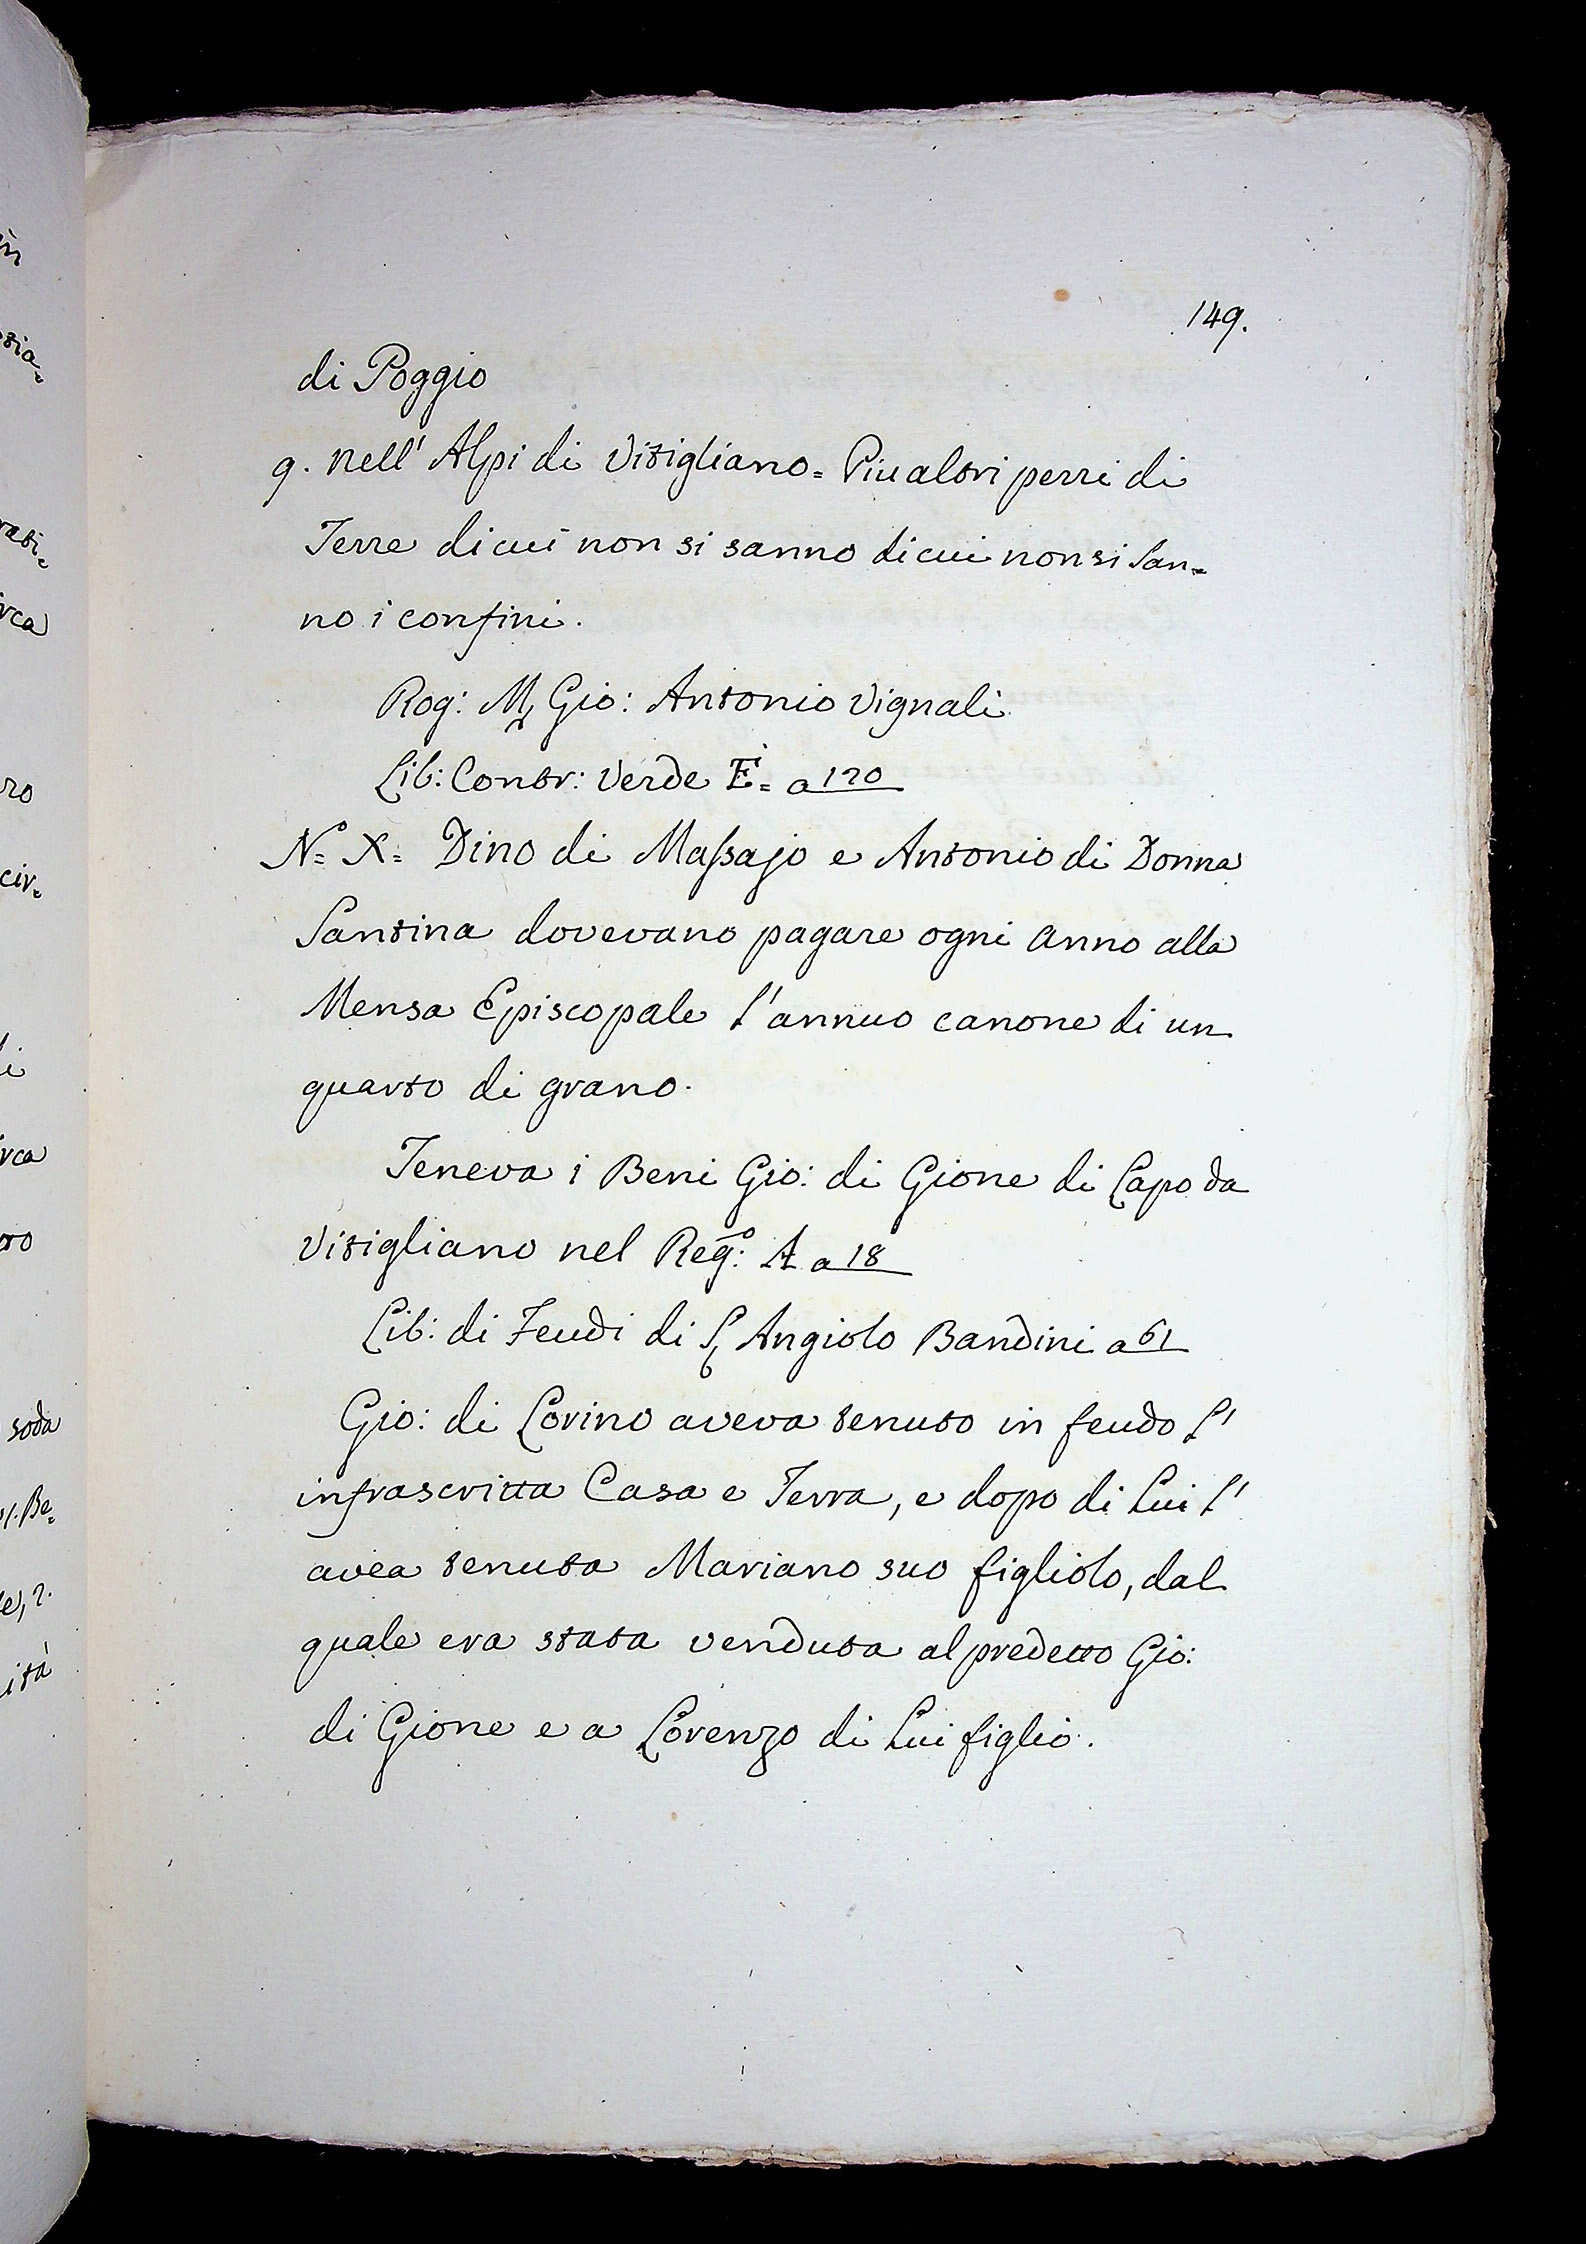 149.
di Poggio
9. nell' Alpi di Vitigliano = Piu altri pezzi di
Terre di cui non si sanno di cui non si san=
no i confini.
Rog: Mr Gio: Antonio Vignali
Lib: Contr: Verde E = a 120
No= X= Dino di Massajo e Antonio di Donna
Santina dovevano pagare ogni anno alla
Mensa Episcopale l'annuo canone di un
quarto di grano.
Teneva i Beni Gio: di Gione di Capo da
Vitigliano nel Rego: A a 18
Lib: di Feudi di Sr Angiolo Bandini a 61
Gio: di Lorino aveva tenuto in feudo l'
infrascritta Casa e Terra, e dopo di Lui l'
avea tenuta Mariano suo figliolo, dal
quale era stata venduta al predetto Gio:
di Gione e a Lorenzo di Lui figlio.